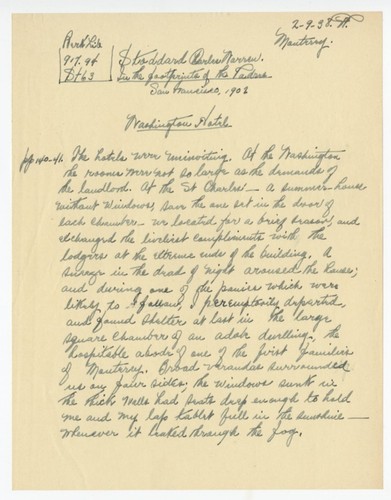 2-9-38. A.
Monterey.
Berk. Lib
917.94
St63
Stoddard Charles Warren.
In the footprints of the Padres
San Francisco, 1902
Washington Hotel
pp 140-41. The hotels were uninviting. At the Washington
the rooms were not so large as the demands of
the landlord. At the St Charles — a summer-house
without windows, save the one set in the door of
each chamber — we located for a brief season, and
exchanged the liveliest compliments with the
lodgers at the extreme ends of the building. A
sneeze in the dead of night aroused the house;
and during one of the panics which were
likely to follow, I peremptorily departed
and found shelter at last in the large
square chamber of an adobe dwelling, the
hospitable abode of one of the first families
of Monterey. Broad verandas surrounded
us on four sides, the windows sunk in
the thick walls had seats deep enough to hold
me and my lap tablet full in the sunshine —
whenever it leaked through the fog.